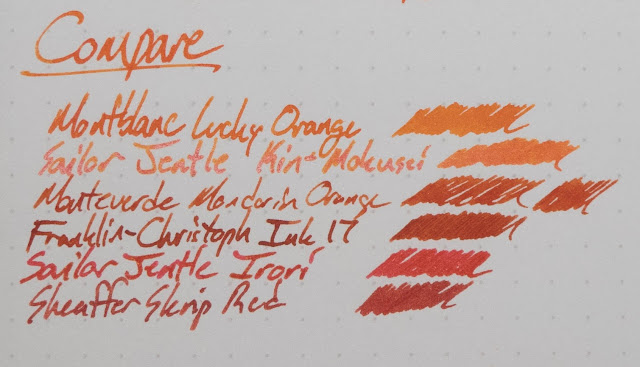 Compare
Montblanc Lucky Orange
Sailor Jentle Kin-Mokusei
Monteverde Mandarin Orange
Franklin-Christoph Ink 17
Sailor Jentle Irori
Sheaffer Skrip Red